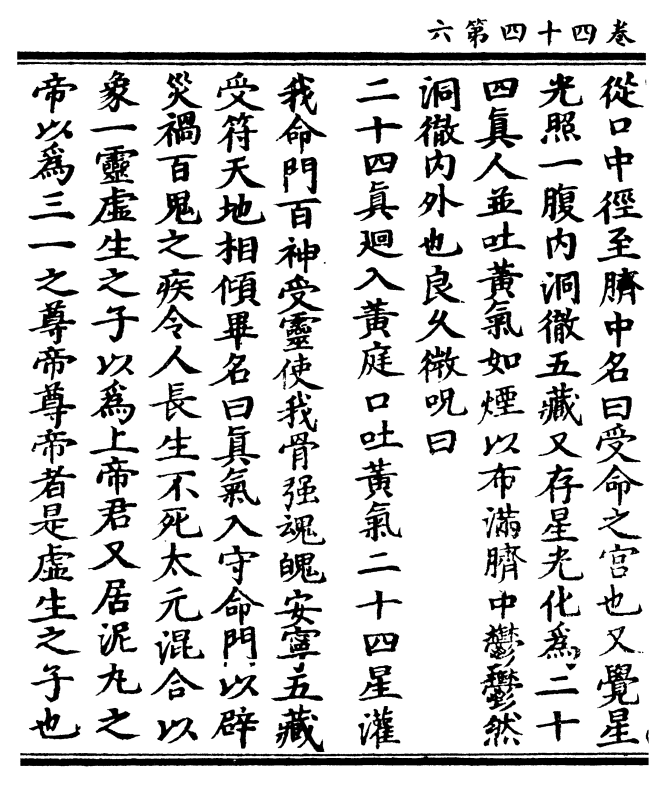 卷四十四第六
從口中徑至臍中名曰受命之宮也又覺星
光照一腹內洞徹五藏又存星光化爲二十
四真人並吐黃氣如煙以布滿臍中鬱鬱然
洞徹內外也良久微呪曰
二十四真廻入黃庭口吐黃氣二十四星灌
我命門百神受靈使我骨强魂魄安寧五藏
受符天地相傾畢名曰眞氣入守命門以辟
災禍百鬼之疾令人長生不死太元混合以
象一靈虛生之子以爲上帝君又居泥丸之
帝以爲三一之尊帝尊帝者是虛生之子也